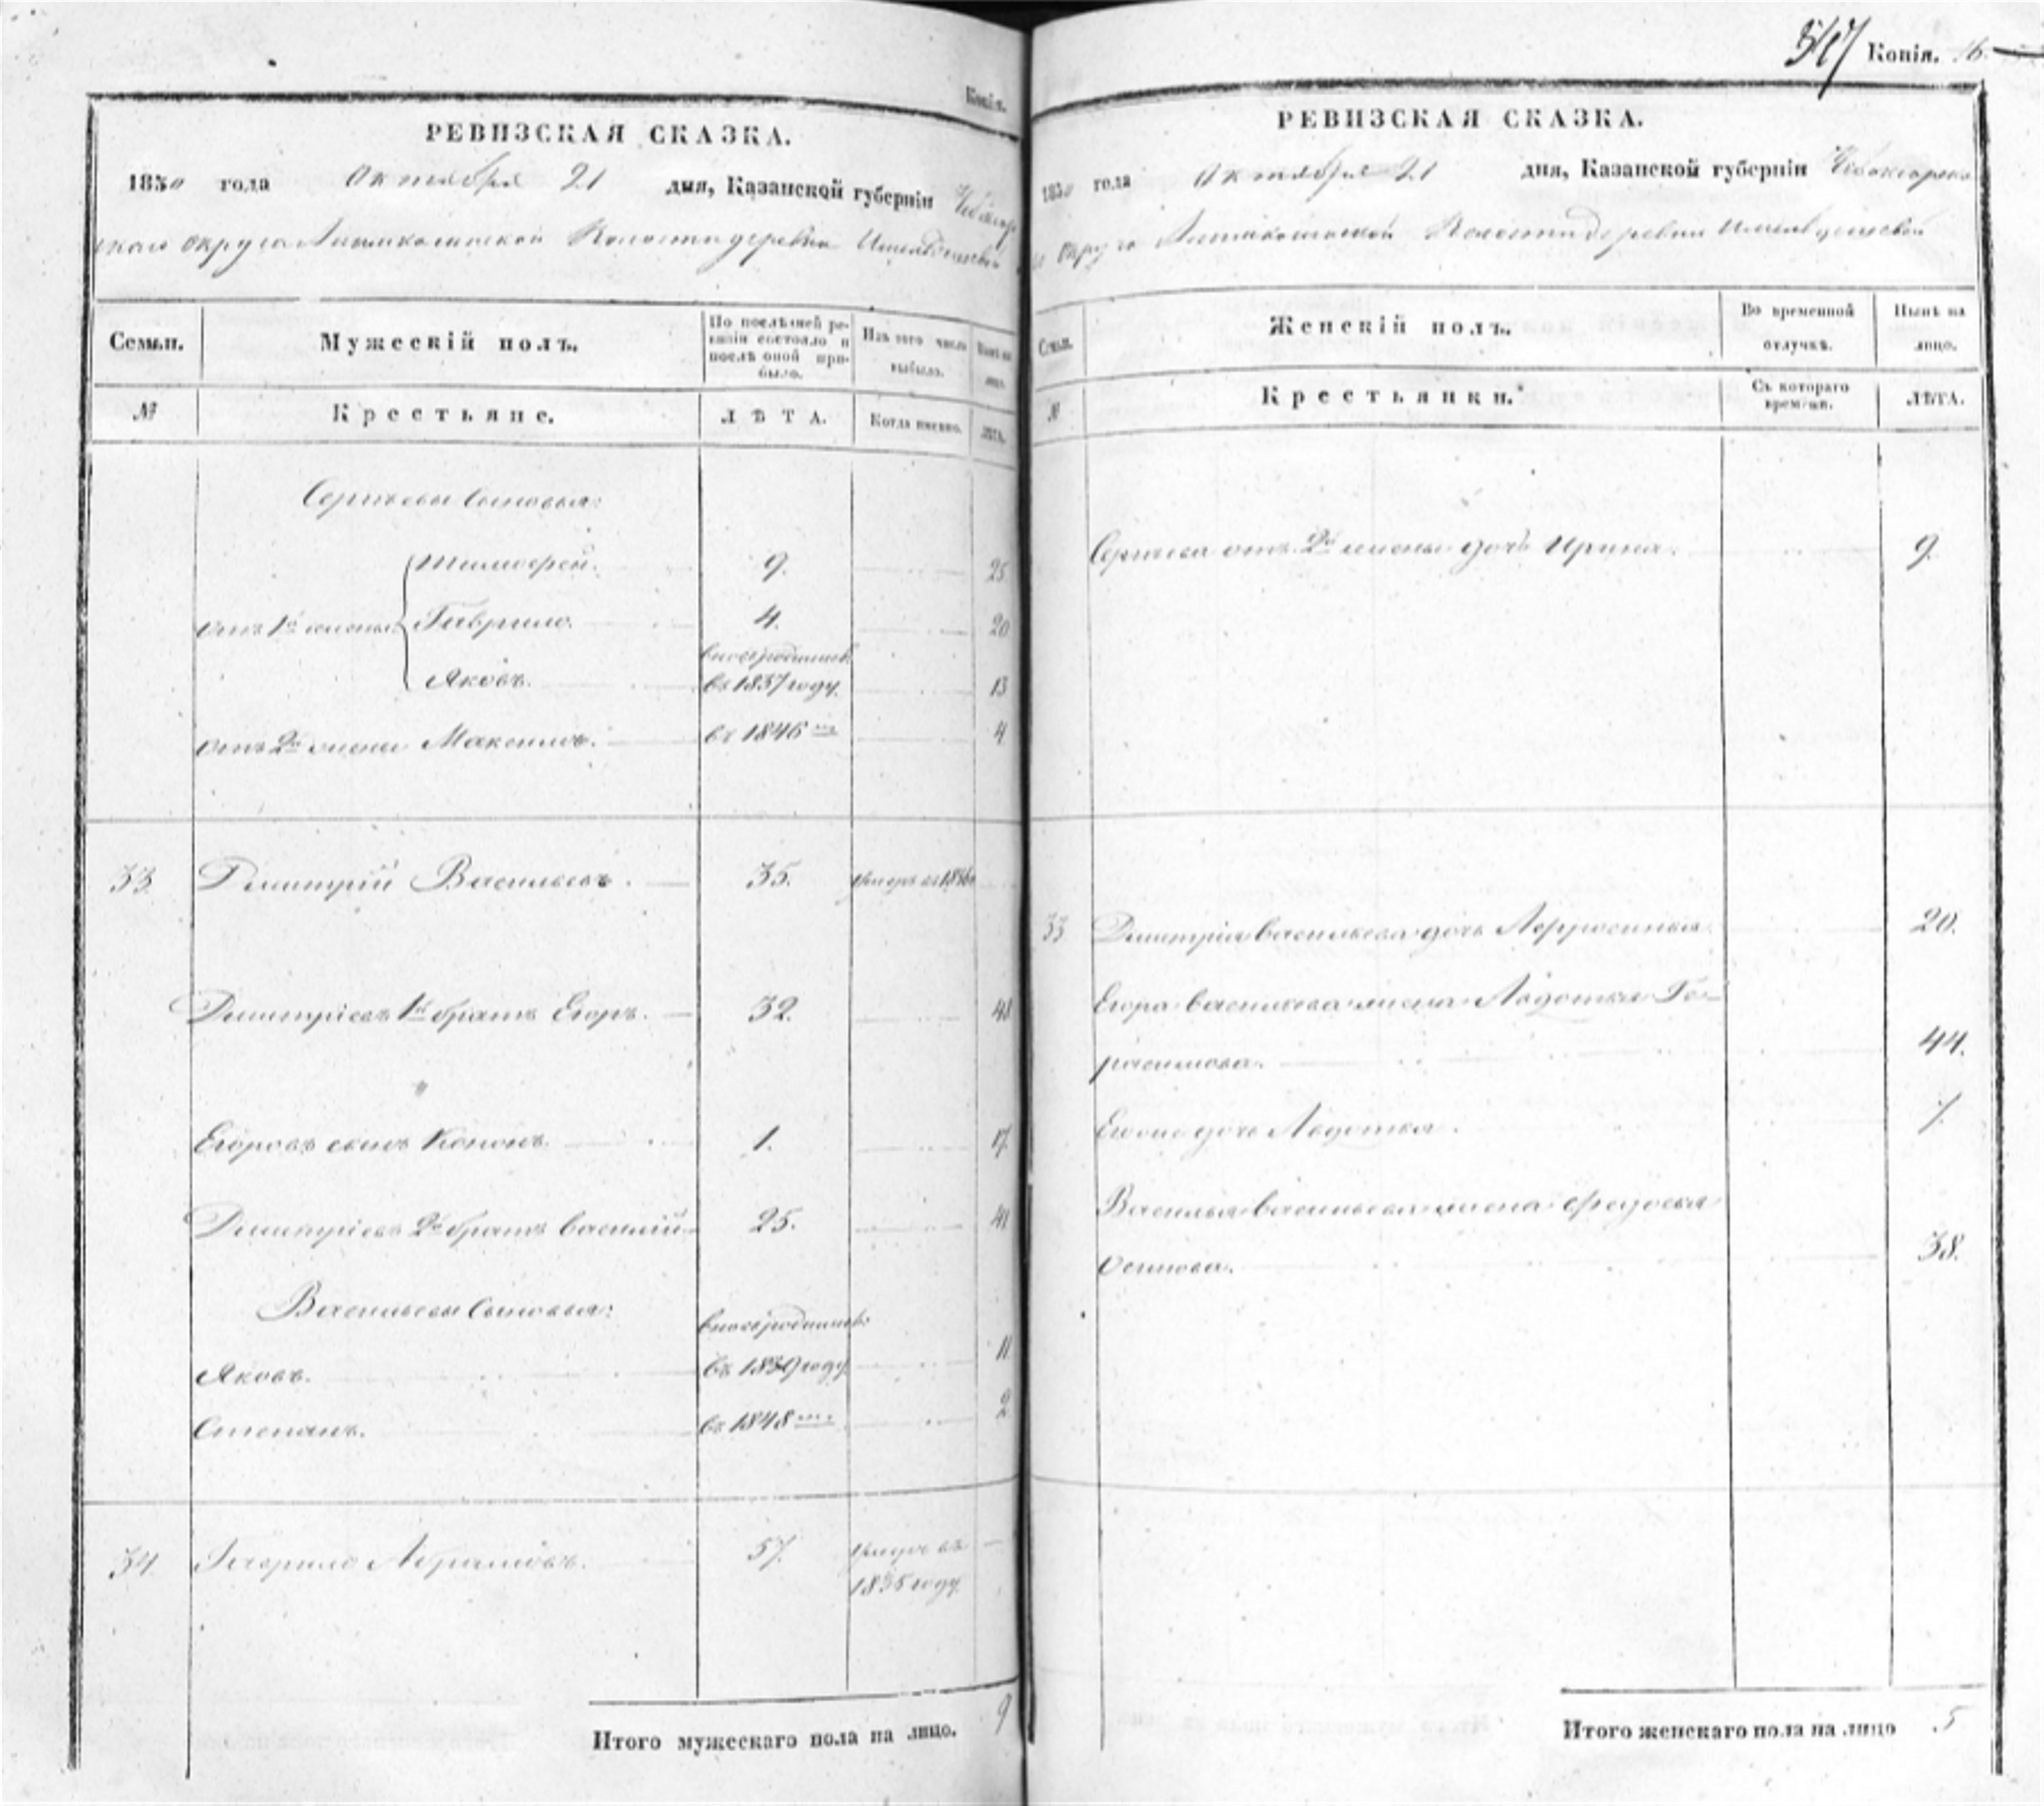 Копія.
РЕВИЗСКАЯ СКАЗКА.
1850 года Октября 21 дня, Казанской губерніи Чебоксар
скаго округа волости деревни
Семьи. Мужескій полъ. По послѣдней ре-
визіи состояло и
послѣ оной при-
было. Изъ того числа
выбыло. Нынѣ на
лицо.
№ Крестьяне. ЛѢТА. Когда именно. ЛѢТА.
Сергѣевы сыновья:
Тимофей. 9. 25
отъ 1й жены Гаврило. 4. 20
Яковъ. въ 1837 году. 13
отъ 2й жены Максимъ. въ 1846 4
33 Димитрій Васильевъ. 35. умеръ въ 1846
Димитріевъ 1й братъ Егоръ. 32. 48
Егоровъ сынъ Кононъ. 1. 17
Димитріевъ 2й братъ Василій 25. 41
Васильевы сыновья:
Яковъ. въ 1839 году. 11
Степанъ. въ 1848 2
34 Гаврило Абрамовъ. 57. умеръ въ
1835 году.
Итого мужескаго пола на лицо. 9
547 Копія. 16
РЕВИЗСКАЯ СКАЗКА.
1850 года Октября 21 дня, Казанской губерніи Чебоксарска
округа волости деревни
Семьи. Женскій полъ. Во временной
отлучкѣ. Нынѣ на
лицо.
№ Крестьянки. Съ котораго
времени. ЛѢТА.
Сергѣева отъ 2й жены дочь Ирина. 9.
33 Димитрія Васильева дочь 20.
Егора Васильева жена Авдотья Ге-
расимова. 44.
Егора дочь Авдотья. 7.
Василья Васильева жена Федосья
Осипова. 38.
Итого женскаго пола на лицо 5